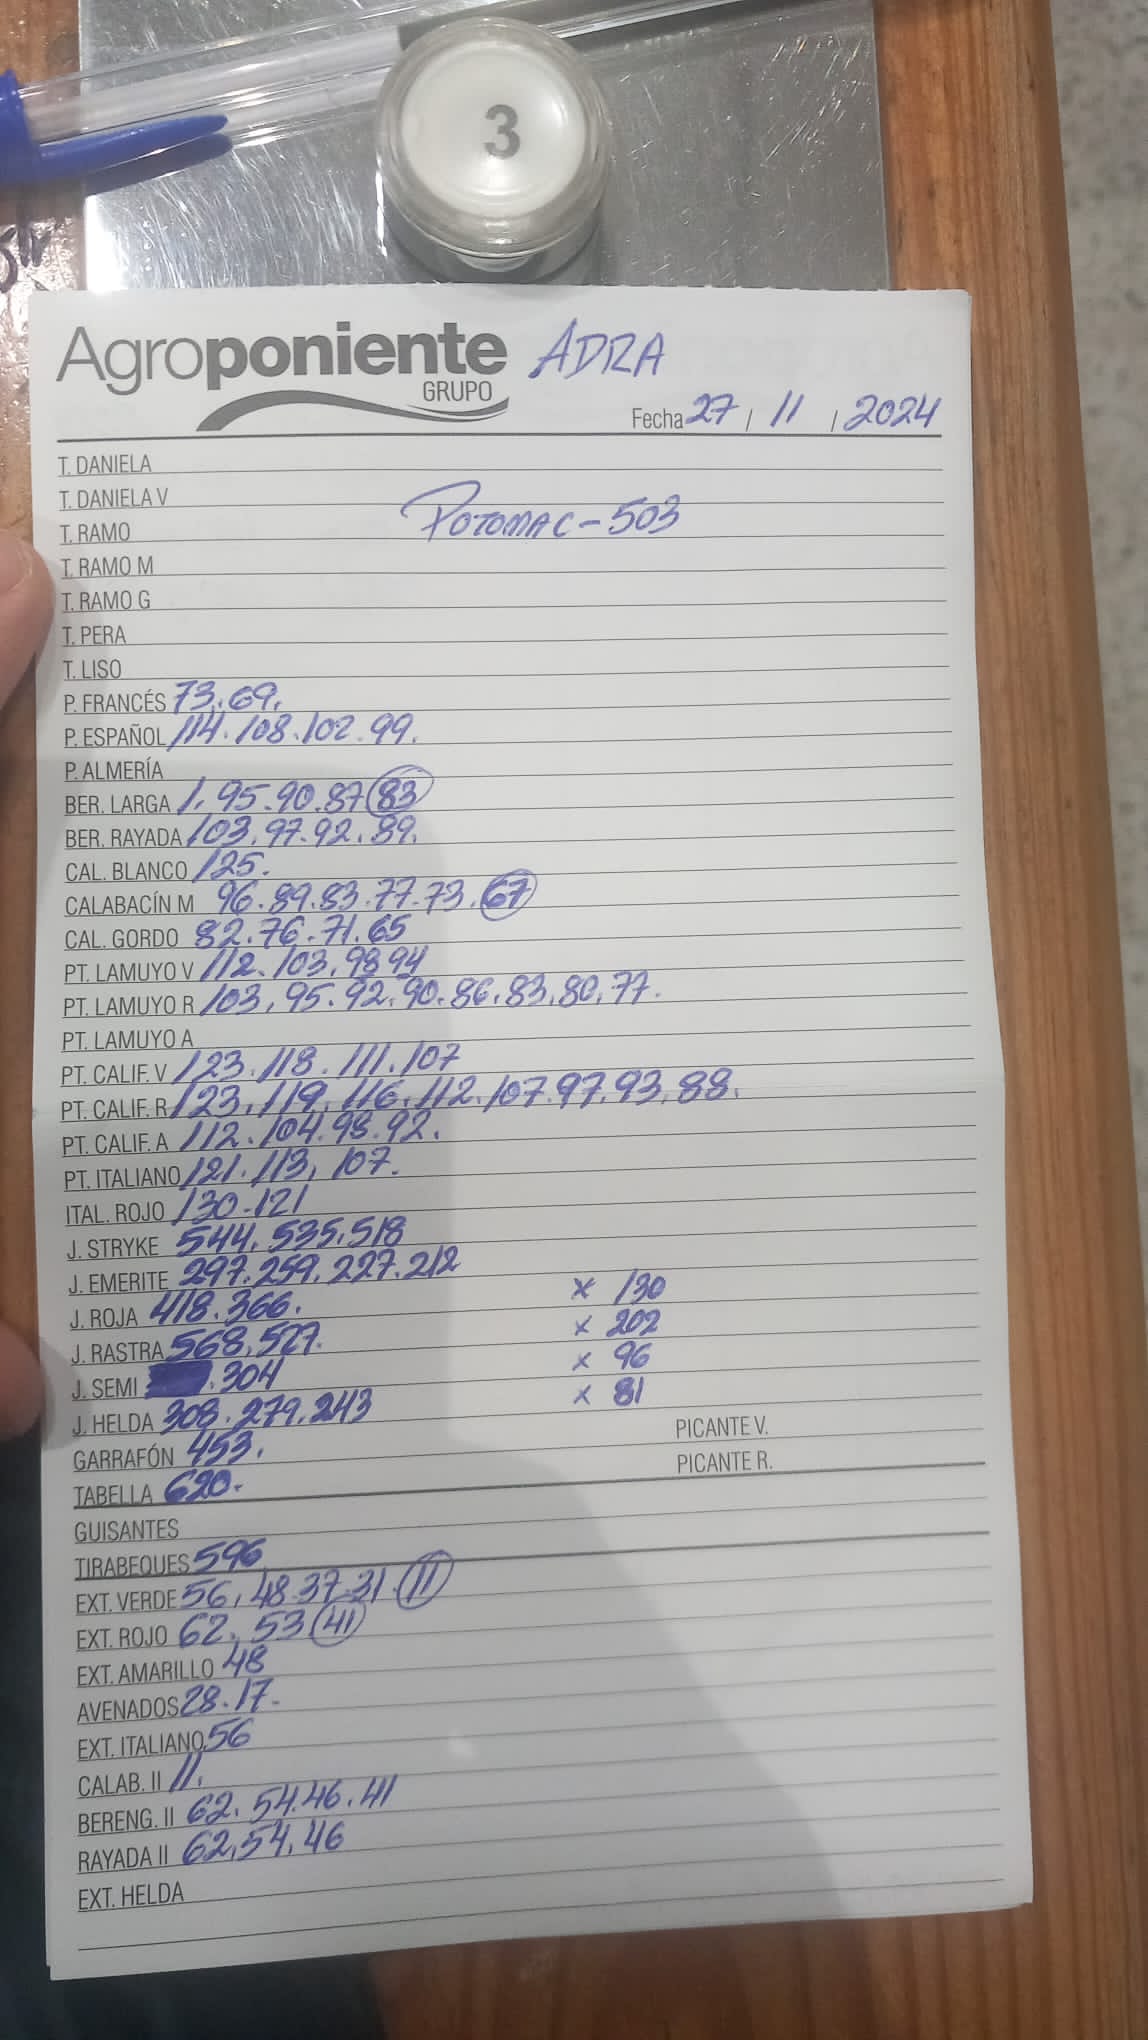 3
Agroponiente ADRA
GRUPO
Fecha 27 / 11 / 2024
T. DANIELA
T. DANIELA V
POTOMAC-503
T. RAMO
T. RAMO M
T. RAMO G
T. PERA
T. LISO
P. FRANCÉS 73.69.
P. ESPAÑOL 114.108.102.99.
P. ALMERÍA
BER. LARGA 1.95.90.87 83
BER. RAYADA 103.97.92.89.
CAL. BLANCO 125.
CALABACÍN M 96.89.83.77.73.67
CAL. GORDO 82.76.71.65
PT. LAMUYO V 112.103.98 94
PT. LAMUYO R 103.95.92.90.86.83.80.77.
PT. LAMUYO A
PT. CALIF. V 123.118.111.107
PT. CALIF. R 123.119.116.112.107.97.93.88.
PT. CALIF. A 112.104.98.92.
PT. ITALIANO 121.113.107.
ITAL. ROJO 130-121
J. STRYKE 544.535.518
J. EMERITE 297.259.227.212
J. ROJA 418.366. x 130
J. RASTRA 568.527. x 202
J. SEMI .304 x 96
J. HELDA 308.279.243 x 81
GARRAFÓN 453. PICANTE V.
TABELLA 620. PICANTE R.
GUISANTES
TIRABEQUES 596
EXT. VERDE 56.48.37.31.11
EXT. ROJO 62.53 41
EXT. AMARILLO 48
AVENADOS 28.17.
EXT. ITALIANO 56
CALAB. II 11.
BERENG. II 62.54.46.41
RAYADA II 62.54.46
EXT. HELDA